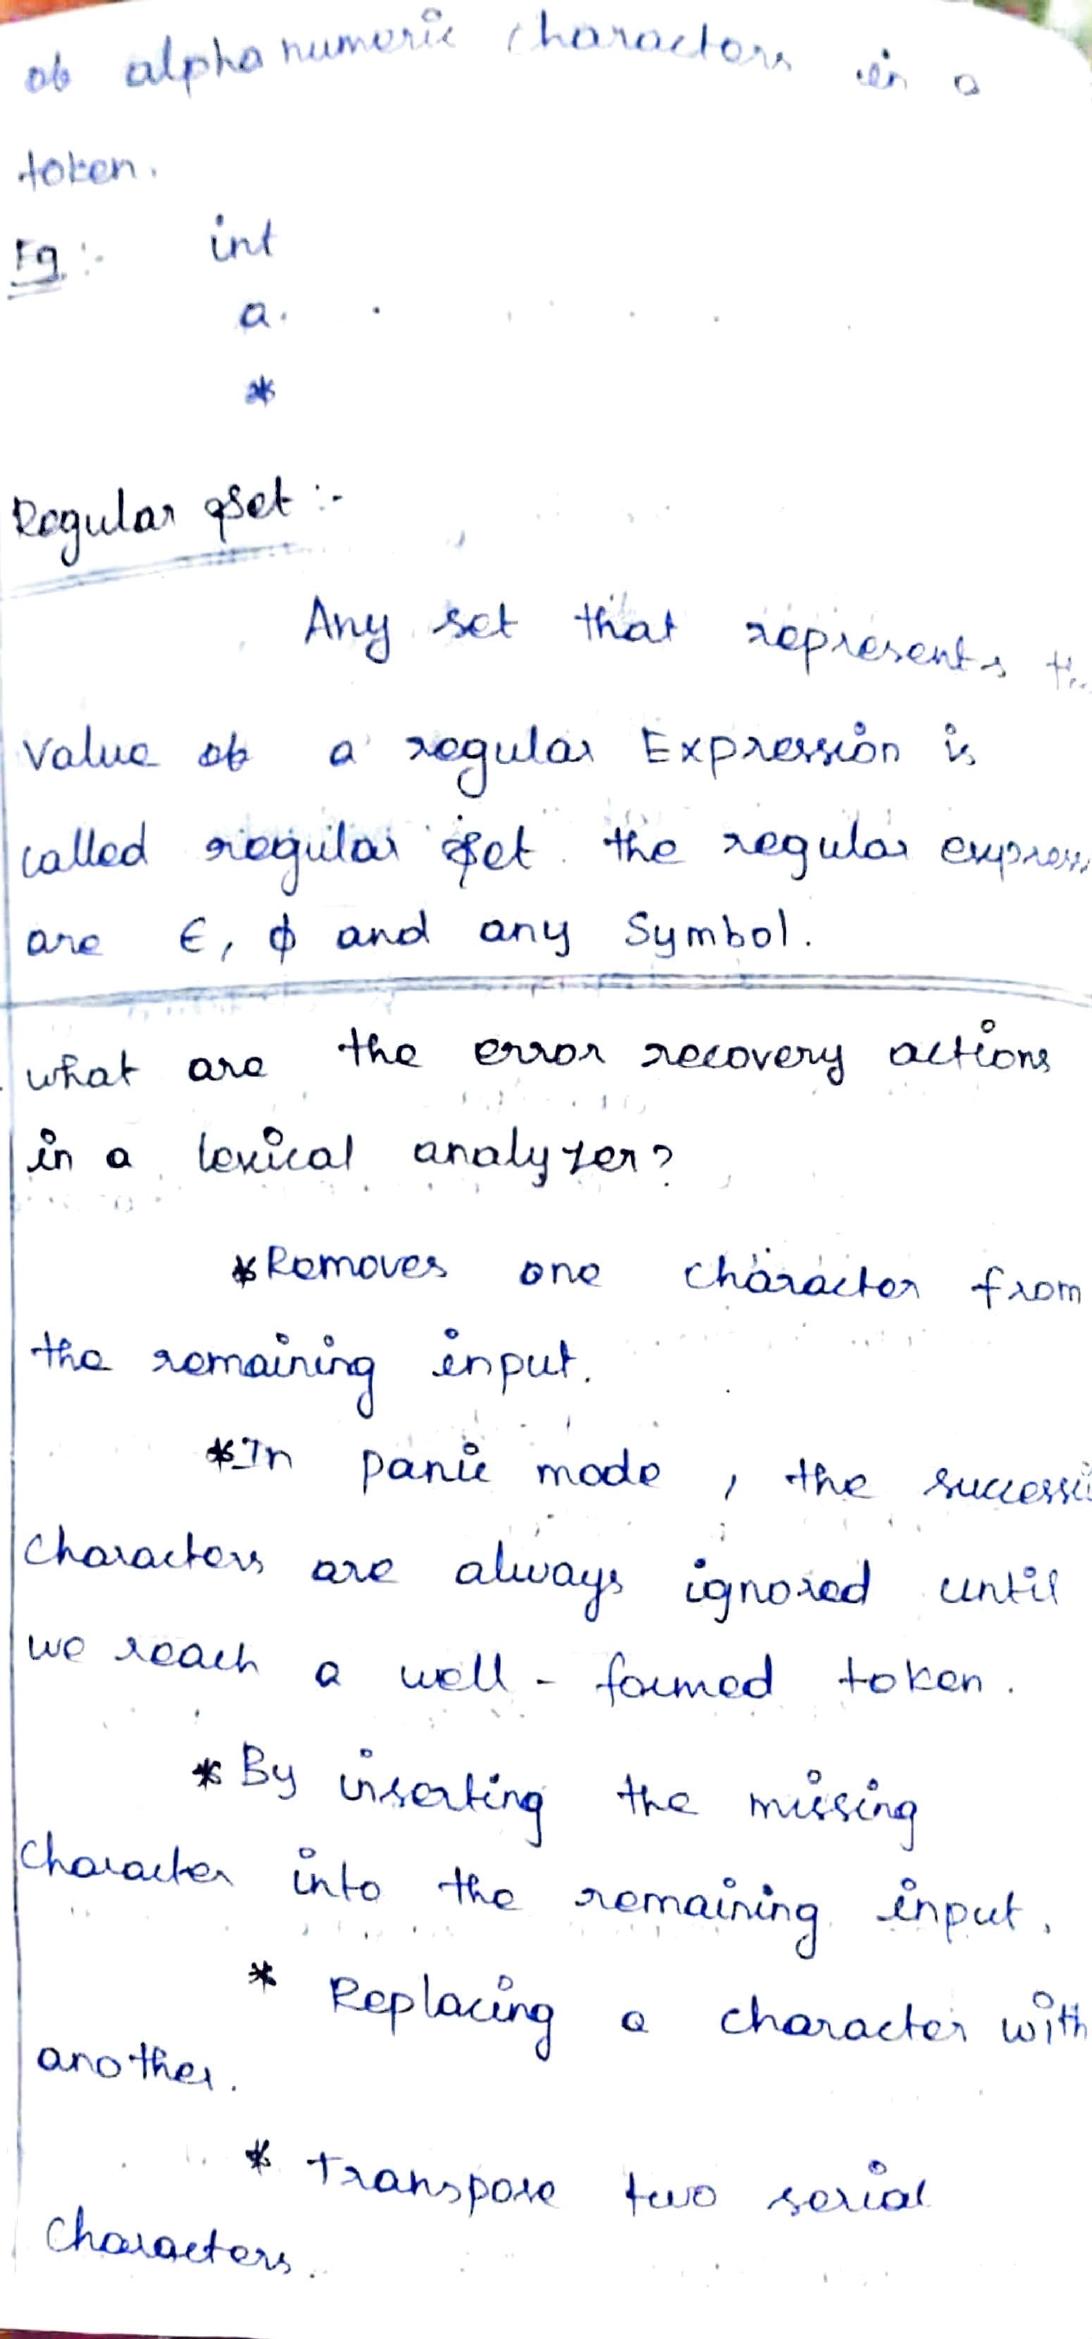 of alphanumeric characters in a
token.
Eg :- int
a.
*
Regular set :-
Any set that represents
Value of a regular Expression is
called regular set. the regular
are ϵ, ϕ and any Symbol.
what are the error recovery actions
in a lexical analyzer?
*Removes one character from
the remaining input.
*In panic mode , the
characters are always ignored until
we reach a well - formed token.
* By inserting the missing
Character into the remaining input.
* Replacing a character with
another.
* Transpose two serial
Characters.